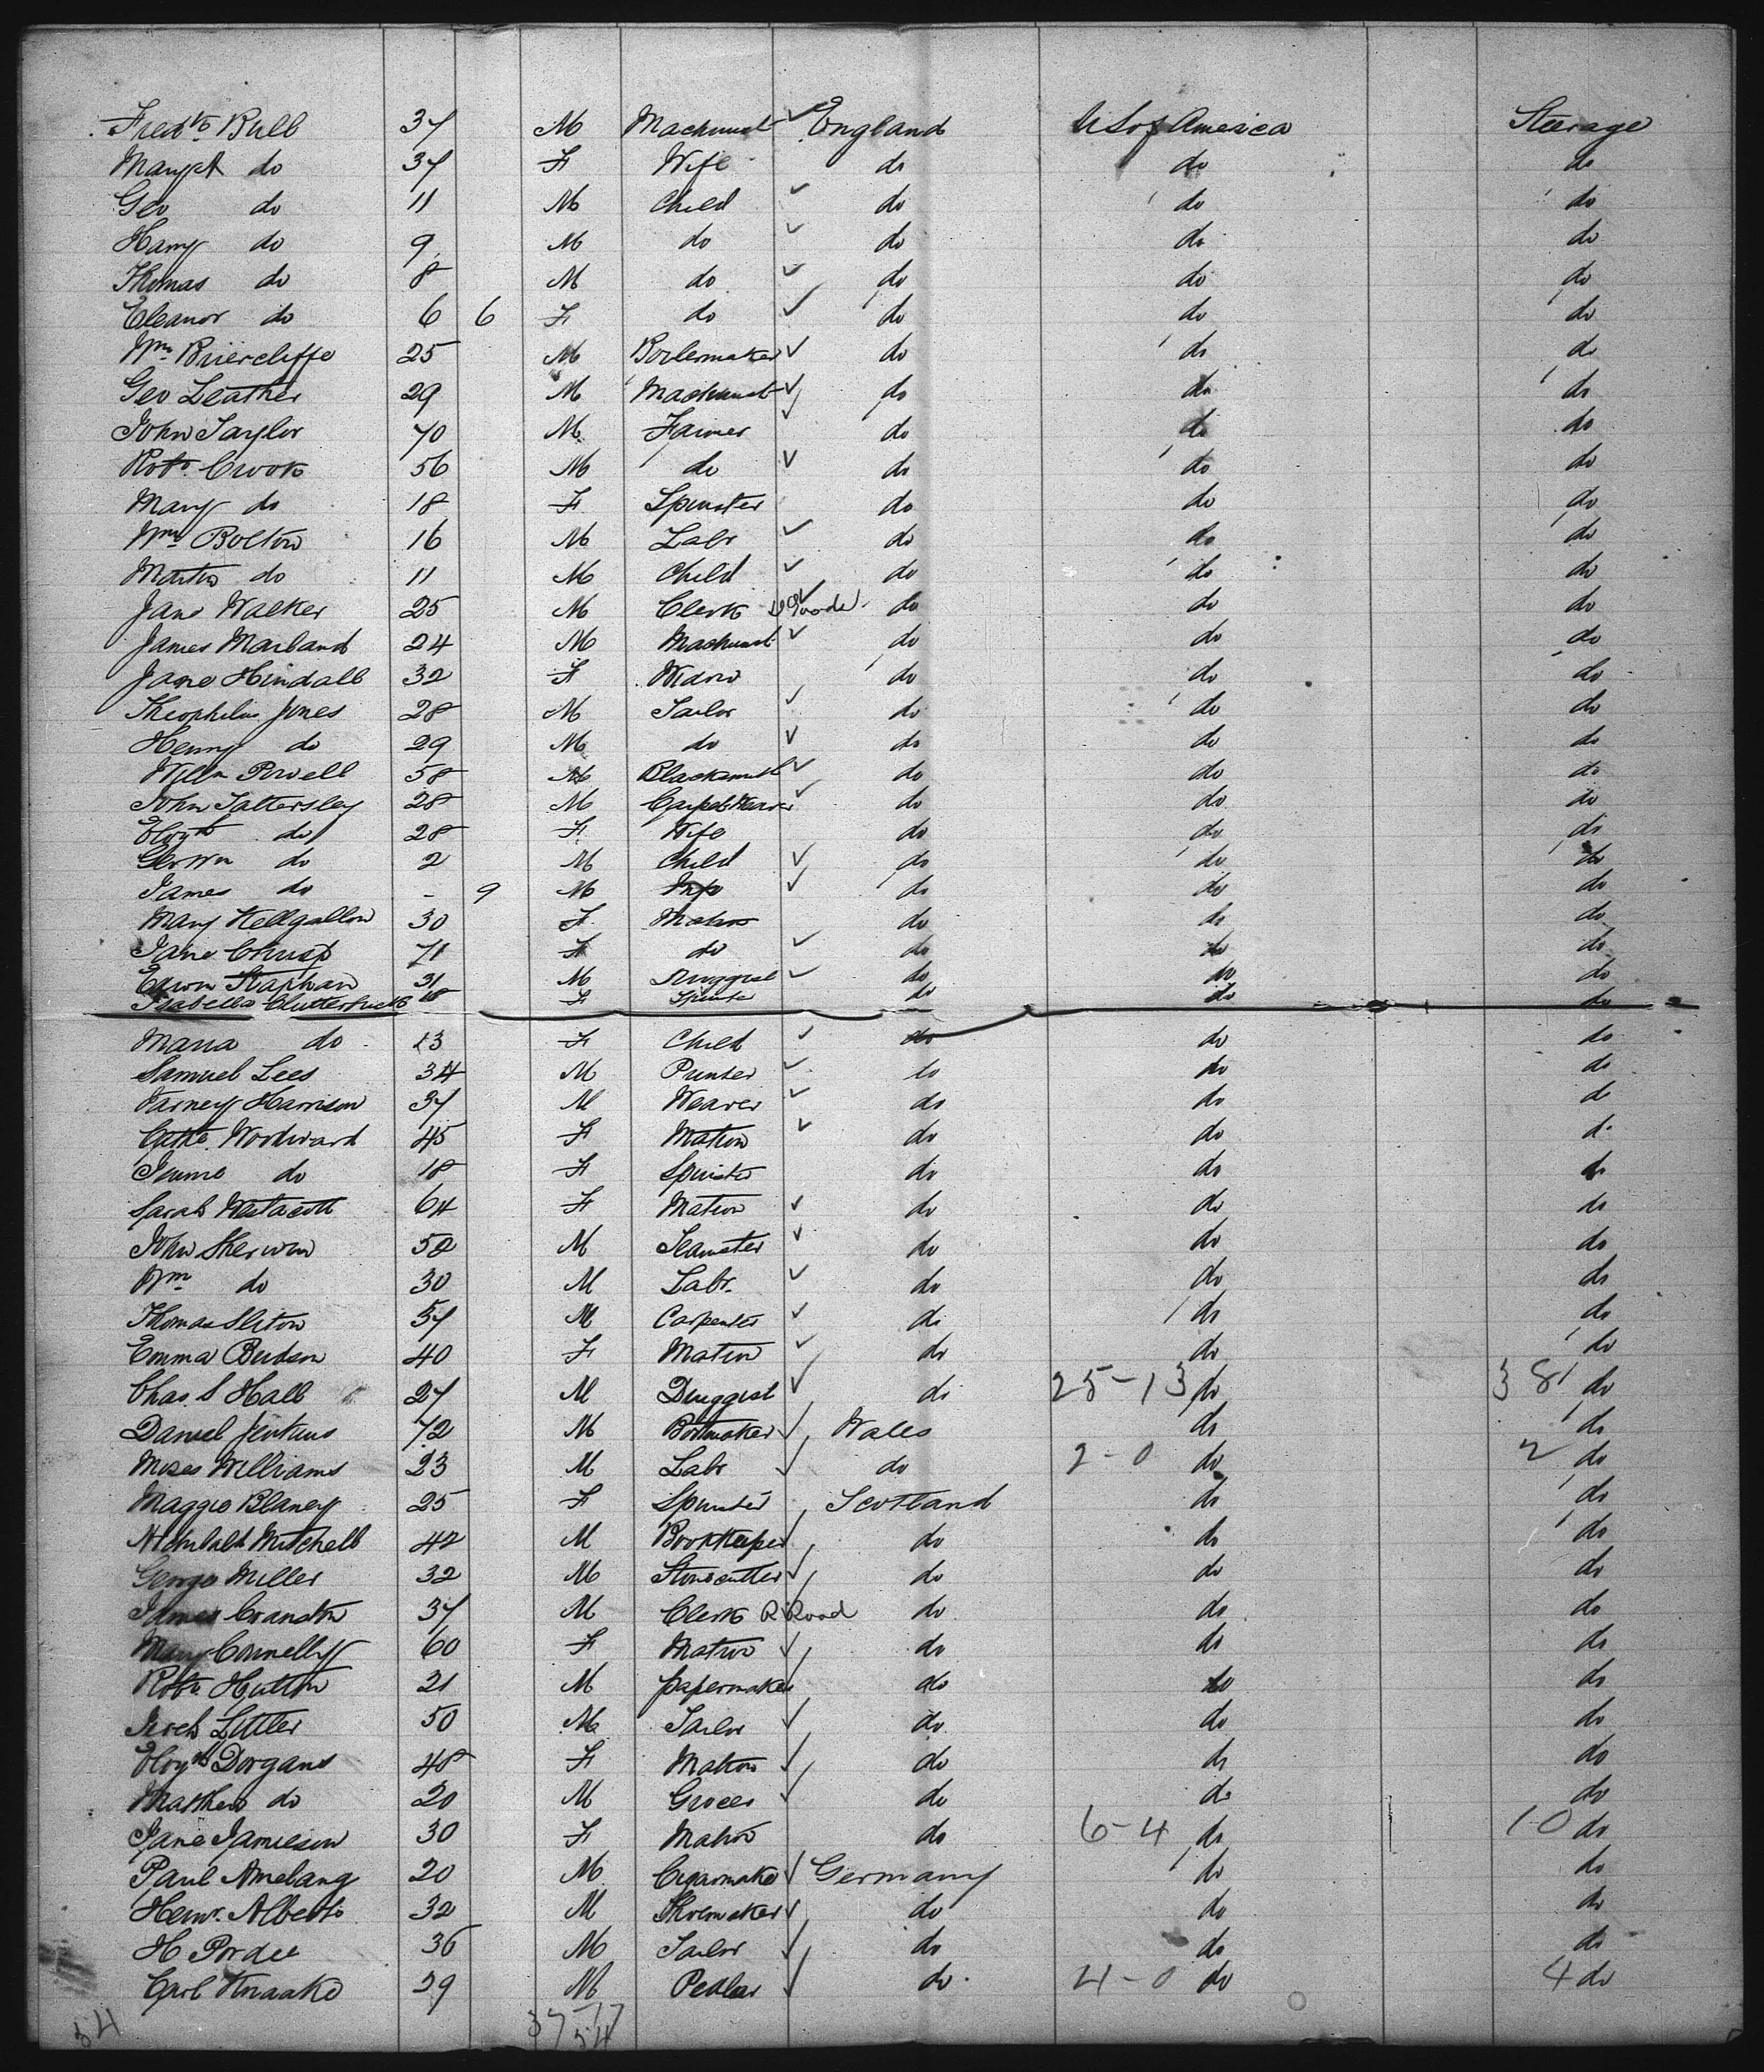 Fredk Bull 37 M Machinist England U S of America Steerage
Margt do 37 F Wife do do do
Geo do 11 M Child do do do
Harry do 9 M do do do do
Thomas do 8 M do do do do
Eleanor do 6 6 F do do do do
Wm Briercliffe 25 M Boilermaker do do do
Geo Leather 29 M Machinist do do do
John Taylor 70 M Farmer do do do
Robt Crook 56 M do do do do
Mary do 18 F Spinster do do do
Wm Bolton 16 M Labr do do do
Martin do 11 M Child do do do
Jane Walker 25 M Clerk do do do
James Marland 24 M Machinist do do do
Jane Hindall 32 F Widow do do do
Theophilus Jones 28 M Tailor do do do
Henry do 29 M do do do do
Willm Powell 58 M Blacksmith do do do
John Tattersley 28 M Carpet Weaver do do do
Elizth do 28 F Wife do do do
Geo Wm do 2 M Child do do do
James do - 9 M Inft do do do
Mary Kellgallon 30 F Matron do do do
Jane Chrisp 71 F do do do do
Edwin Kaphan 31 M Druggist do do do
Isabella Clutterbuck 18 F Spinster do do do
Maria do 13 F Child do do do
Samuel Lees 34 M Printer do do do
Varney Harrison 37 M Weaver do do do
Cathe Woodward 45 F Matron do do do
Jemima do 18 F Spinster do do do
Sarah Westacott 64 F Matron do do do
John Sherwin 50 M Teamster do do do
Wm do 30 M Labr. do do do
Thomas Sliton 57 M Carpenter do do do
Emma Budson 40 F Matron do do do
Chas. S Hall 27 M Druggist do 25-13 do 38 do
Daniel Jenkins 72 M Bootmaker Wales do do
Moses Williams 23 M Labr do 2-0 do 2 do
Maggie Blaney 25 F Spinster Scotland do do
Archibald Mitchell 42 M Bookkeeper do do do
George Miller 32 M Stonecutter do do do
James Cranston 37 M Clerk R Road do do do
Mary Connelly 60 F Matron do do do
Robt Hutton 21 M papermaker do do do
Littler 50 M Tailor do do do
Elizth Dorgans 48 F Matron do do do
Matthew do 20 M Grocer do do do
Jane Jamieson 30 F Matron do 6-4 do 10 do
Paul Amelang 20 M Cigarmaker Germany do do
Heinr. Alberts 32 M Shoemaker do do do
H Pordee 36 M Tailor do do do
Carl Knaake 29 M Pedlar do 4-0 do 4 do
54 37-17
54